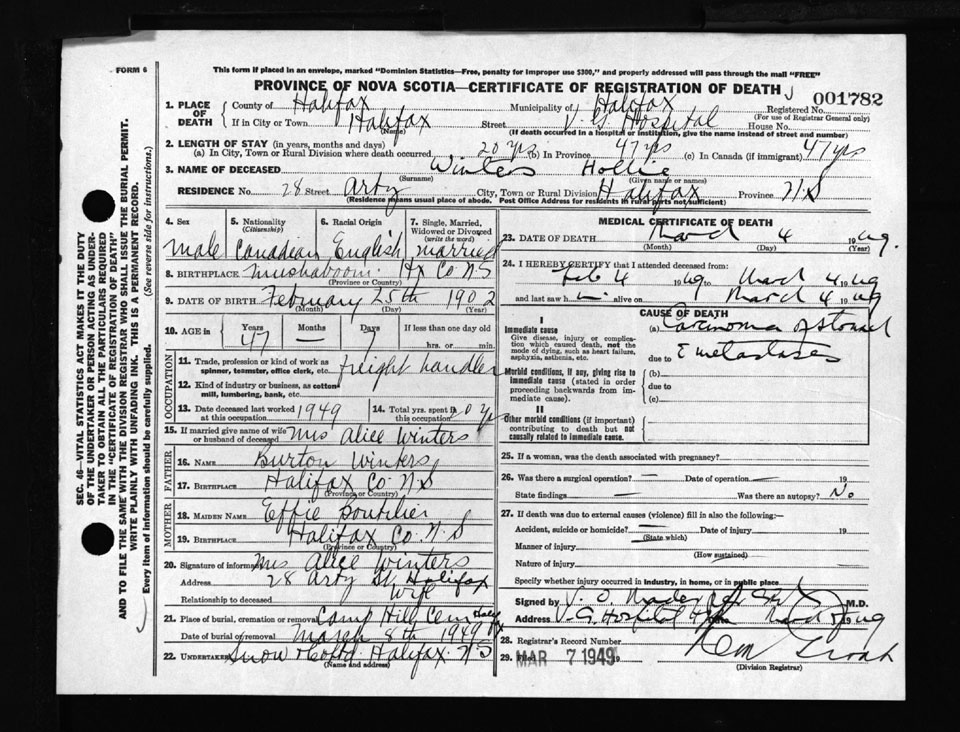 FORM 6
This form if placed in an envelope, marked "Dominion Statistics—Free, penalty for improper use $300," and properly addressed will pass through the mail "FREE"
PROVINCE OF NOVA SCOTIA—CERTIFICATE OF REGISTRATION OF DEATH
001782
1. PLACE OF DEATH
County of Halifax Municipality of Halifax Registered No.
(For use of Registrar General only)
If in City or Town Halifax Street V. G. Hospital House No.
(Name) (If death occurred in a hospital or institution, give the name instead of street and number)
2. LENGTH OF STAY (in years, months and days)
(a) In City, Town or Rural Division where death occurred 20 yrs (b) In Province 47 yrs (c) In Canada (if immigrant) 47 yrs
3. NAME OF DECEASED Winters Hollie
(Surname) (Given name or names)
RESIDENCE No. 28 Street Arty City, Town or Rural Division Halifax Province N.S
(Residence means usual place of abode. Post Office Address for residents in rural parts not sufficient)
4. Sex 5. Nationality 6. Racial Origin 7. Single, Married, Widowed or Divorced
(Citizenship) (write the word)
Male Canadian English married
8. BIRTHPLACE Mushaboom Hx Co N S
(Province or Country)
9. DATE OF BIRTH February 25th 1902
(Month) (Day) (Year)
10. AGE in Years Months Days If less than one day old
47 — 7 hrs. or min.
OCCUPATION
11. Trade, profession or kind of work as spinner, teamster, office clerk, etc. freight handler
12. Kind of industry or business, as cotton mill, lumbering, bank, etc.
13. Date deceased last worked at this occupation 1949 14. Total yrs. spent in this occupation 20 yrs
15. If married give name of wife or husband of deceased Mrs Alice Winters
FATHER
16. NAME Burton Winters
17. BIRTHPLACE Halifax Co. N S
(Province or Country)
MOTHER
18. MAIDEN NAME Effie Boutilier
19. BIRTHPLACE Halifax Co. N. S
(Province or Country)
20. Signature of informant Mrs Alice Winters
Address 28 Arty St. Halifax
Relationship to deceased Wife
21. Place of burial, cremation or removal Camp Hill Cem Halifax
Date of burial or removal March 8th 1949
22. Undertaker Snow & Co Ltd Halifax N.S
(Name and address)
MEDICAL CERTIFICATE OF DEATH
23. DATE OF DEATH March 4 1949.
(Month) (Day) (Year)
24. I HEREBY CERTIFY that I attended deceased from:
Feb 4 1949 to March 4 1949
and last saw him alive on March 4 1949
CAUSE OF DEATH
I
Immediate cause
Give disease, injury or complication which caused death, not the mode of dying, such as heart failure, asphyxia, asthenia, etc.
(a) Carcinoma of stomach
due to c̄ metastases
Morbid conditions, if any, giving rise to immediate cause (stated in order proceeding backwards from immediate cause).
(b)
due to
(c)
II
Other morbid conditions (if important) contributing to death but not causally related to immediate cause.
25. If a woman, was the death associated with pregnancy?
26. Was there a surgical operation? — Date of operation — 19
State findings — Was there an autopsy? No
27. If death was due to external causes (violence) fill in also the following:—
Accident, suicide or homicide? — Date of injury 19
(State which)
Manner of injury
(How sustained)
Nature of injury
Specify whether injury occurred in industry, in home, or in public place
Signed by M.D.
Address V. G. Hospital 1949
28. Registrar's Record Number
29. Filed MAR 7 1949
(Division Registrar)
SEC. 46—VITAL STATISTICS ACT MAKES IT THE DUTY
OF THE UNDERTAKER OR PERSON ACTING AS UNDERTAKER TO OBTAIN ALL THE PARTICULARS REQUIRED
IN THE "CERTIFICATE OF REGISTRATION OF DEATH"
AND TO FILE THE SAME WITH THE DIVISION REGISTRAR WHO SHALL ISSUE THE BURIAL PERMIT.
WRITE PLAINLY WITH UNFADING INK. THIS IS A PERMANENT RECORD.
Every item of information should be carefully supplied. (See reverse side for instructions.)